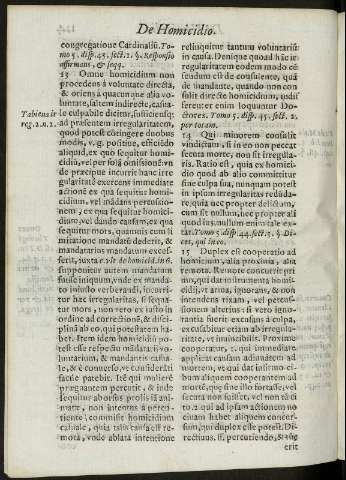 De Homicidio.
congregatione Cardinaliũ. To-
mo 5. disp. 45. sect. 2. §. Responsio
affirmans, & seqq.
13 Omne homicidium non
procedens à voluntate directa,
& oriens à quacunque alia vo-
luntate, saltem indirecte, causa-
le culpabile dicitur, sufficiensq;
ad præsentem irregularitatem,
quod potest cõtingere duobus
modis, v. g. positiue, efficiẽdo
aliquid, ex quo sequitur homi-
cidiũ, vel per solã omissionẽ
de præcipue incurrit hanc irre
gularitatẽ exercens immediate
actionẽ ex qua sequitur homi-
cidium, vel mádans percussio-
nem, ex qua sequitur homici-
dium, vel dando causam, ex qua
sequitur mors, quamuis cum li
mitatione mandatũ dederit, &
mandatarius mandatum exces-
serit, iuxta c. vlt. de homicid. in 6.
supponitur autem mandatum
fuisse iniquum, vnde ex manda-
to iniusto verberandi, incurri-
tur hæc irregularitas, si sequa-
tur mors, non vero ex iusto in
ordine ad correctionẽ, & disci-
plinã ab eo, qui potestatem ha-
bet. Item idem homicidiũ po-
test esse respectu mãdatarij vo-
luntarium, & mandantis casua-
le, & è conuerso, vt consideráti
facile patebit. Itẽ qui mulierẽ
prægnantem percutit, & inde
sequitur aborsus prolis iã ani-
matæ, non intentus à percu-
tiente, committit homicidium
casuale, quia talis causa est re-
mota, vnde ablata intentione
Tabiena ir
reg. 2. n. 2.
relinquitur tantum voluntariũ
in causa. Denique quoad hãc ir-
regularitatem eodem modo cẽ
seudum est de consulente, quã
de mandante, quando non con-
sulit directe homicidium, indif
ferenter enim loquuntur Do-
ctores. Tomo 5. disp. 45. sect. 2.
per totam.
14 Qui minorem consulit
vindictam, si in eo non peccat
secuta morte, non fit irregula-
ris. Ratio est, quia ex homici-
dio quod ab alio committitur
sine culpa sua, nunquam potest
in ipsum irregularitas redũda-
re, quia nec propter delictum,
cum sit nullum, nec propter ali
quod ius, nullum enim tale ex-
tat. Tomo 5. disp. 44. sect. 3. §. Di-
ces, qui in eo.
15 Duplex est cooperatio ad
homicidium, alia proxima, alia
remota. Remote concurrit pri-
mo, qui dat instrumenta homi-
cidij, vt arma, iporans, & non
intendens rixam, vel percus-
sionem alterius: si vero igno-
rantia fuerit excusans à culpa,
excusabitur etiam ab irregula-
ritate, vt inuincibilis. Proxime
cooperatur, qui immediate
applicat causam adiunctam ad
mortem, vt qui dat infirmo ci-
bum aliquem cooperantem ad
mortẽ, quæ sine illo fortasse, vel
secuta non fuisset, vel non tã ci
to. 2. qui ad ipsam actionem no
ciuam habet aliquem concur-
sum, qui duplex esse potest. Di-
rectiuus, si, percutiendo, & eũg
erit